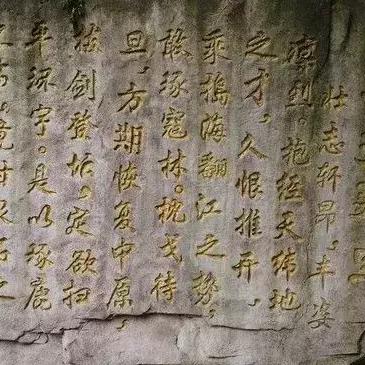 壮志轩昂，丰姿
凛烈。抱经天纬地
之才，久恨推开，
乘捣海翻江之势，
敢琢寇林。枕戈待
旦，方期恢复中原，
拔剑登坛。定欲扫
平琢宇。是以琢鹿